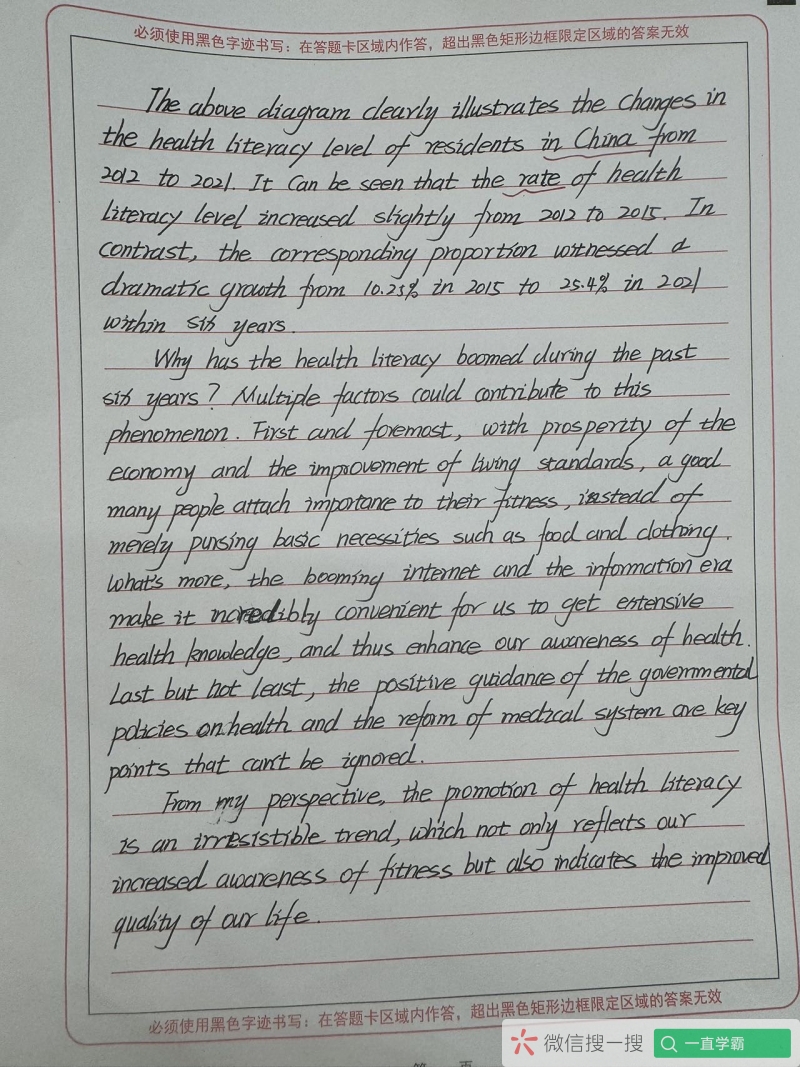 必须使用黑色字迹书写：在答题卡区域内作答，超出黑色矩形边框限定区域的答案无效
The above diagram clearly illustrates the changes in
the health literacy level of residents in China from
2012 to 2021. It can be seen that the rate of health
literacy level increased slightly from 2012 to 2015. In
contrast, the corresponding proportion witnessed a
dramatic growth from 10.25% in 2015 to 25.4% in 2021
within six years.
Why has the health literacy boomed during the past
six years? Multiple factors could contribute to this
phenomenon. First and foremost, with prosperity of the
economy and the improvement of living standards, a good
many people attach importance to their fitness, instead of
merely pursing basic necessities such as food and clothing.
What's more, the booming internet and the information era
make it incredibly convenient for us to get extensive
health knowledge, and thus enhance our awareness of health.
Last but not least, the positive guidance of the governmental
policies on health and the reform of medical system are key
points that can't be ignored.
From my perspective, the promotion of health literacy
is an irresistible trend, which not only reflects our
increased awareness of fitness but also indicates the improved
quality of our life.
必须使用黑色字迹书写：在答题卡区域内作答，超出黑色矩形边框限定区域的答案无效
微信搜一搜 一直学霸